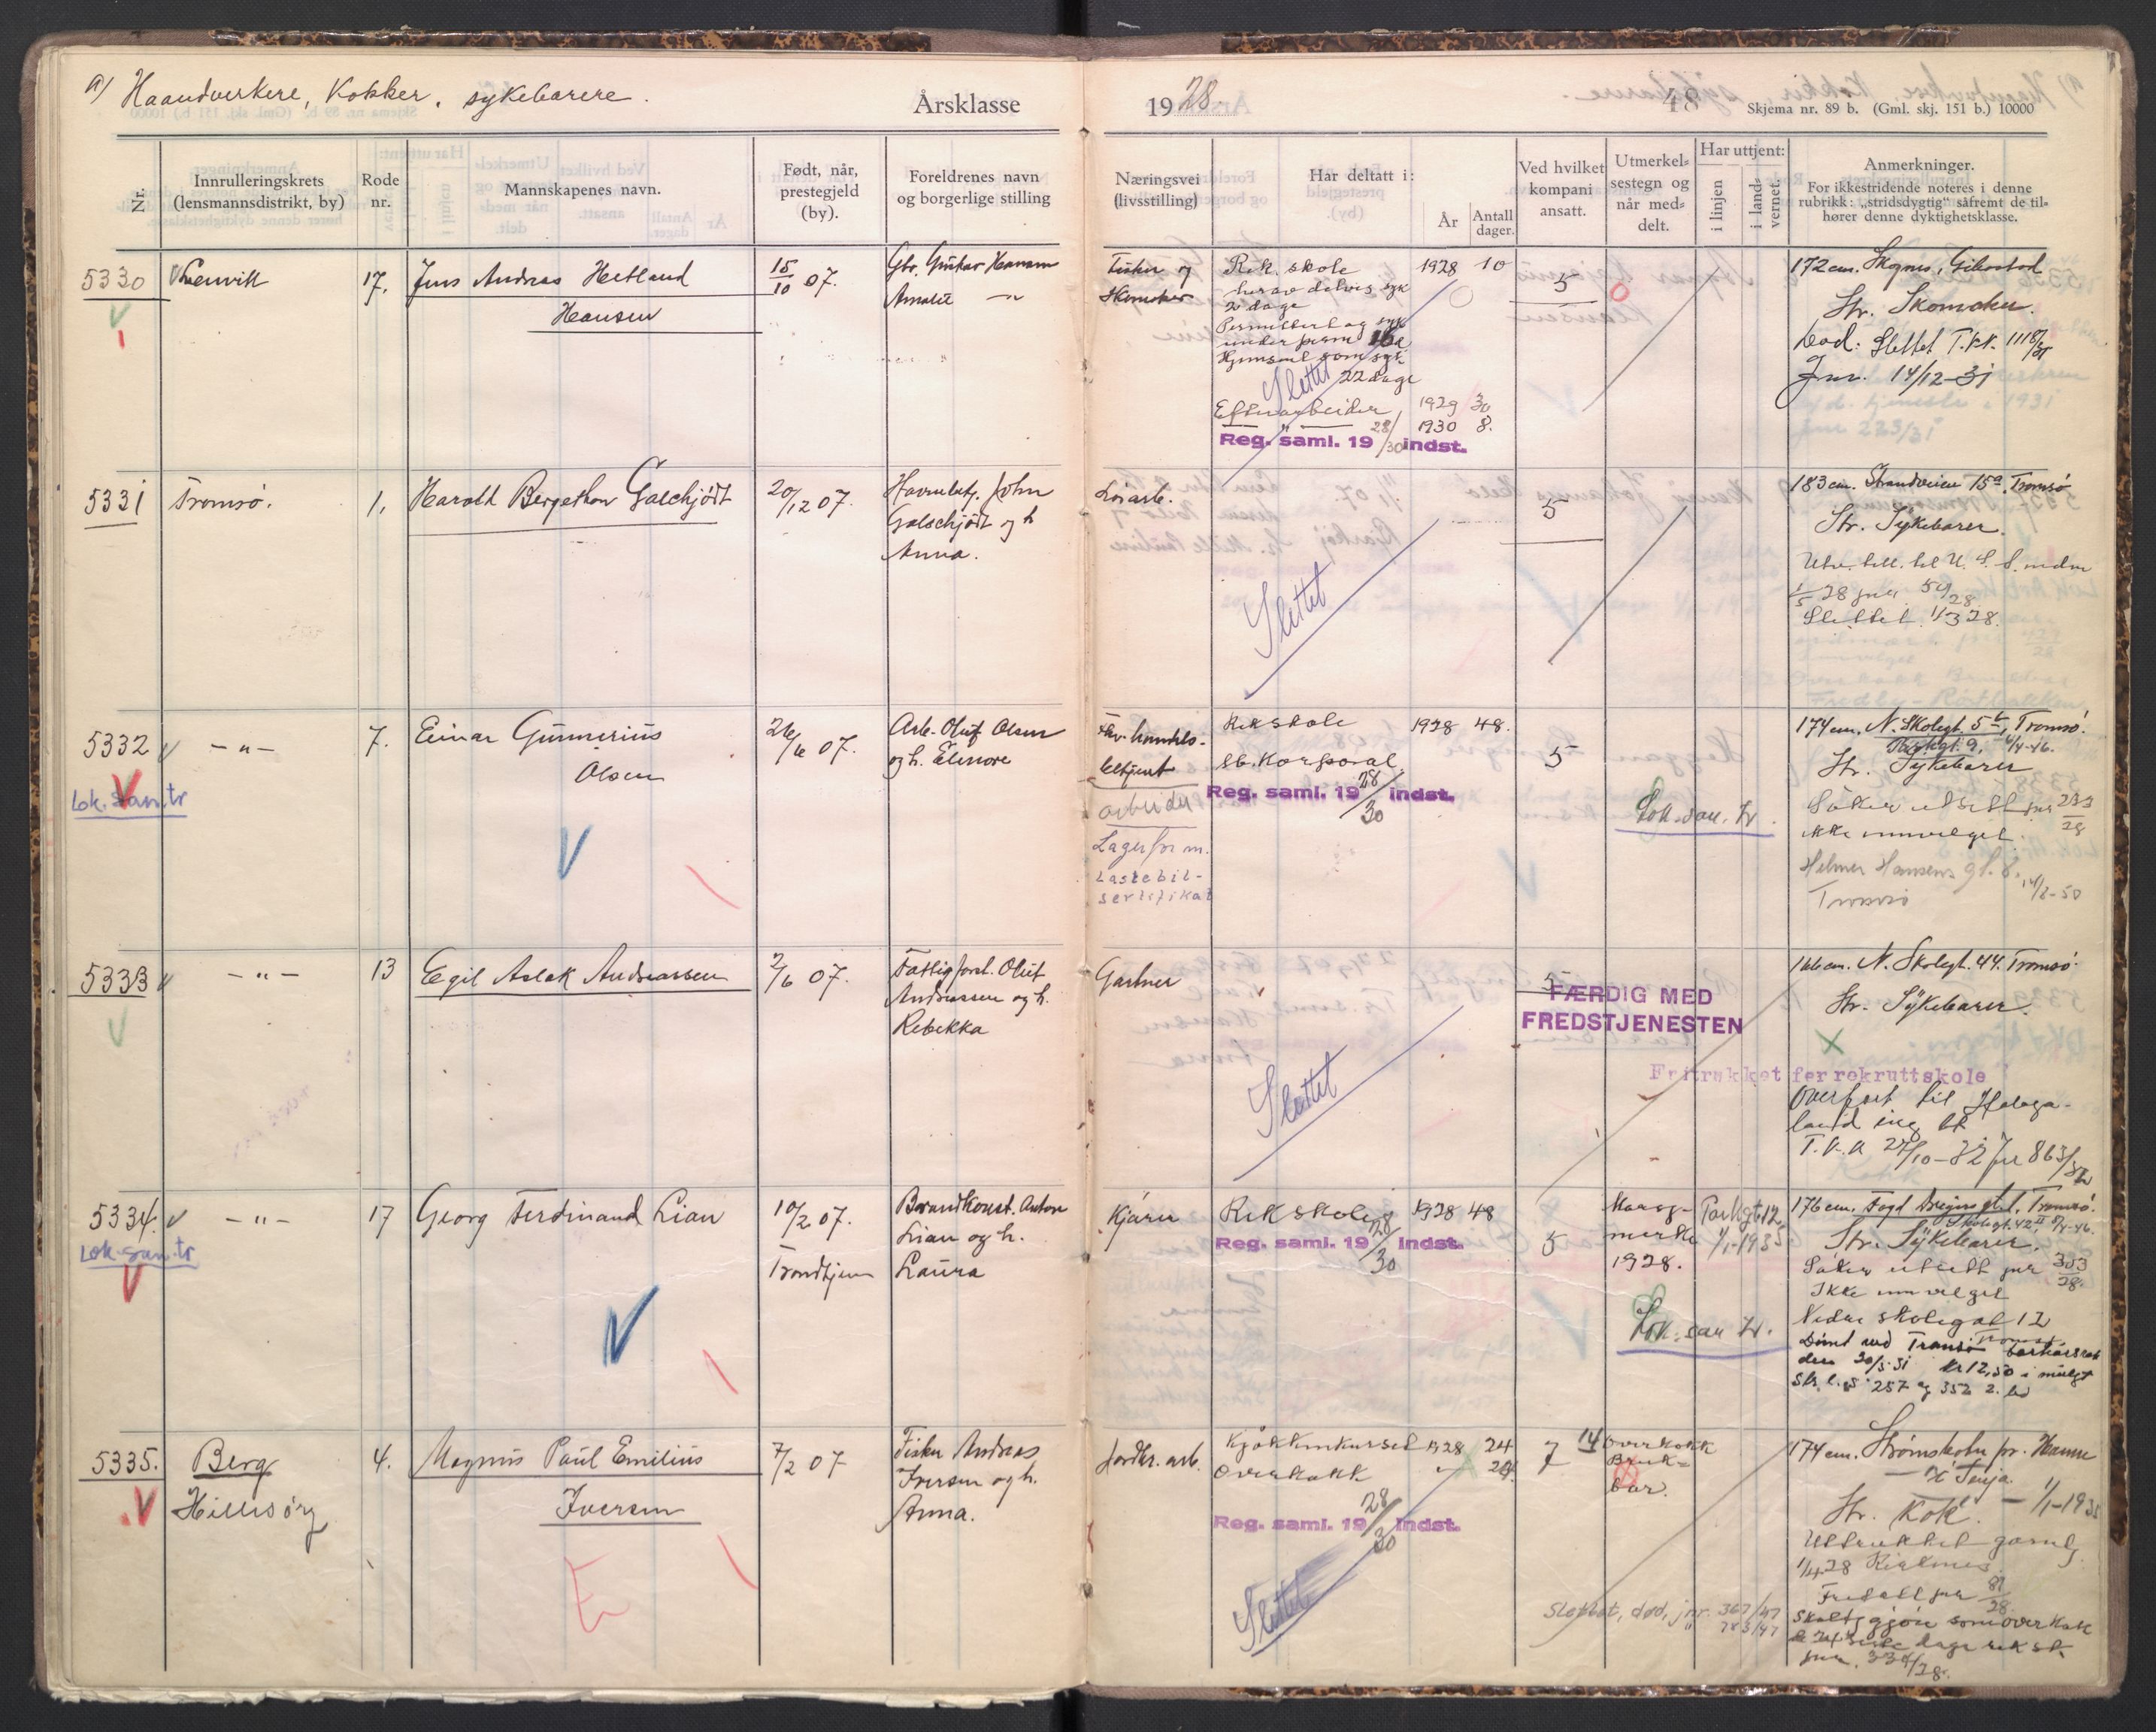 a) Haandverkere, Kokker, sykebærere.
Årsklasse 1928
48
Skjema nr. 89 b. (Gml. skj. 151 b.) 10000
Nr.
Innrulleringskrets (lensmannsdistrikt, by)
Rode nr.
Mannskapenes navn.
Født, når, prestegjeld (by).
Foreldrenes navn og borgerlige stilling
Næringsvei (livsstilling)
Har deltatt i:
År
Antall dager.
Ved hvilket kompani ansatt.
Utmerkelsestegn og når meddelt.
Har uttjent:
i linjen
i landvernet.
Anmerkninger.
For ikkestridende noteres i denne rubrikk: „stridsdygtig" såfremt de tilhører denne dyktighetsklasse.
5330
Lenvik
17.
Jens Andreas Hetland
Hansen
15/10 07.
Gbr. Gustav Hansen
Amalie —"—
Fisker og
Skomaker
Rek. skole 1928 10
herav delvis syk
2 dage
under perm
22 dage
Slettet
Efterarbeider 1929 30
—"— 1930 8.
Reg. saml. 19 28/30 indst.
5
172 cm. Skognes, Gibostad
Str. Skomaker.
Død: Slettet T.K.K. 1118/31
Jnr. 14/12-31
5331
Tromsø.
1.
Harald Bergethon Galschjødt
20/12 07.
Havnebetj. John
Galschjødt og h
Anna.
Løsarb.
Slettet
5
183 cm. Strandveien 15a, Tromsø
Str. Sykebærer.
1/5 28 jnr 59/28
Slettet 1/3 28.
5332
—"—
7.
Einar Gunnerius
Olsen
26/6 07.
Arb. Oluf Olsen
og h. Elenore
Lok. san. tr
arbeider
Lagerform.
Lastebil-
sertifikat
Rekskole 1928 48.
sb. Korporal
Reg. saml. 19 28/30 indst.
5
Lok. san. tr.
174 cm. N. Skolegt. 5b, Tromsø.
Str. Sykebærer
Søker utsett jnr 233/28
ikke innvilget.
Helmer Hansens gt. 8. 14/3-50
Tromsø
5333
—"—
13
Egil Aslak Andreassen
2/6 07.
Fattigforst. Oluf
Andreassen og h.
Rebekka
Gartner
Slettet
5
FÆRDIG MED
FREDSTJENESTEN
166 cm. N. Skolegt. 44. Tromsø.
Str. Sykebærer.
Fritrukket for rekruttskole
Overført til Haloga-
land ing. bt
T.K.K 27/10-32 jnr 863/32
5334.
—"—
17
Georg Ferdinand Lian
10/2 07.
Trondhjem
Brandkonst. Anton
Lian og h.
Laura
Lok. san. tr
Kjøru
Rekskole 1928 48
Reg. saml. 19 28/30 indst.
5
Marsj-
merke
1928.
Parkgt 12
1/1-1935
Lok. san tr.
176 cm. Fogd Dreyers gt. 1, Tromsø.
Skolegt. 42 II
Str. Sykebærer.
Søker utsett jnr 353/28.
Ikke innvilget
Nedre skolegat 12
Tromsø
Dømt ved Tromsø forhørsrett
den 30/5-31 kr 12,50 i mulgt
Str. l. § 257 og 352 2. led
5335.
Berg
Hillesøy
4.
Magnus Paul Emilius
Iversen
7/2 07
Fisker Andreas
Iversen og h.
Anna.
E
Jordbr. arb.
Kjøkkenkurset 1928 24
Overkokk " 24
Reg. saml. 19 28/30 indst.
Slettet
7
14
Overkokk
Bruk-
bar.
Slettet, død, jnr. 367/47
" 783/47
174 cm. Strømsbotn pr. Hamn
i Senja
— 1/1-1935
Str. Kok.
1/4 28 Kirkenes
jnr 81/28
Skal tjgjøre som overkokk
de 24 siste dage rek sk.
jnr. 334/28.